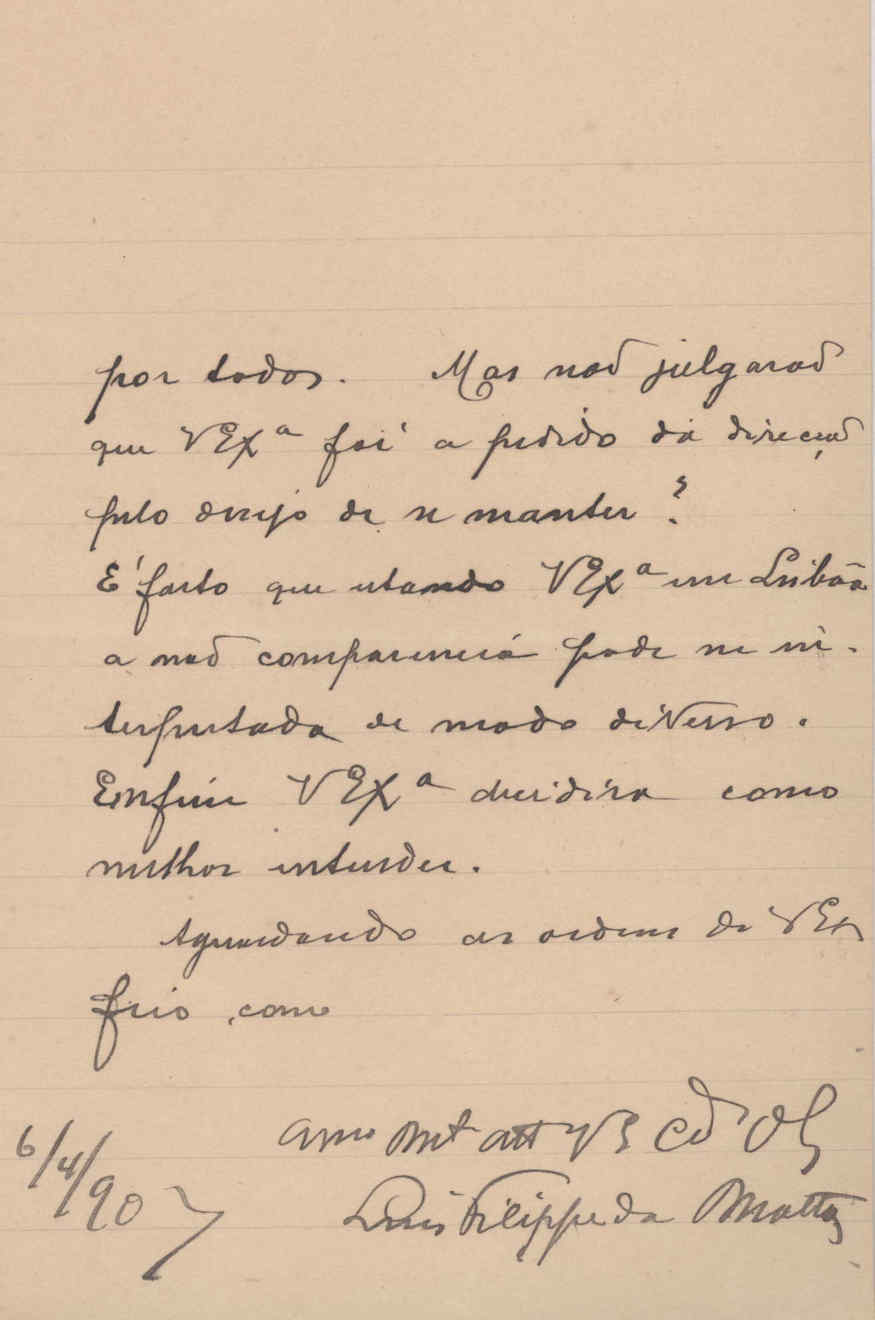 por todos. Mas não julgarão
que VExª foi a pedido da direcção
pelo desejo de se manter?
E' facto que estando VExª em Lisbôa
a não comparencia pode ser in-
terpretada de modo diverso.
Emfim VExª decidira como
melhor entender.
Aguardando as ordens de VEx
fico, como
Amº Mtº Attº V
Luis Filippe da Matta
6/4/907